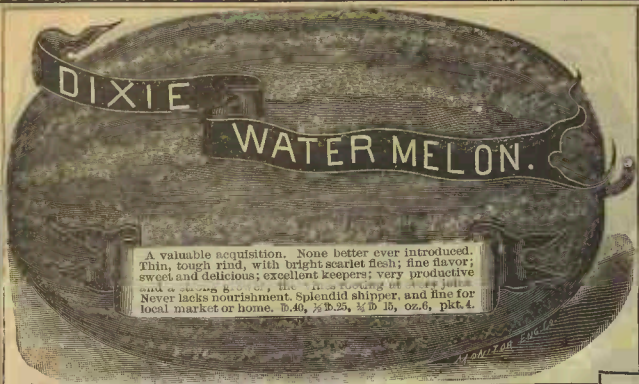 DIXIE
WATER MELON.
A valuable acquisition. None better ever introduced.
Thin, tough rind, with bright scarlet flesh; fine flavor;
sweet and delicious; excellent keepers; very productive
and a strong the rooting at
Never lacks nourishment. Splendid shipper, and fine for
local market or home. ℔.40, ½ ℔.25, ¼ ℔ 15, oz.6, pkt.4.
MONITOR ENG. CO.